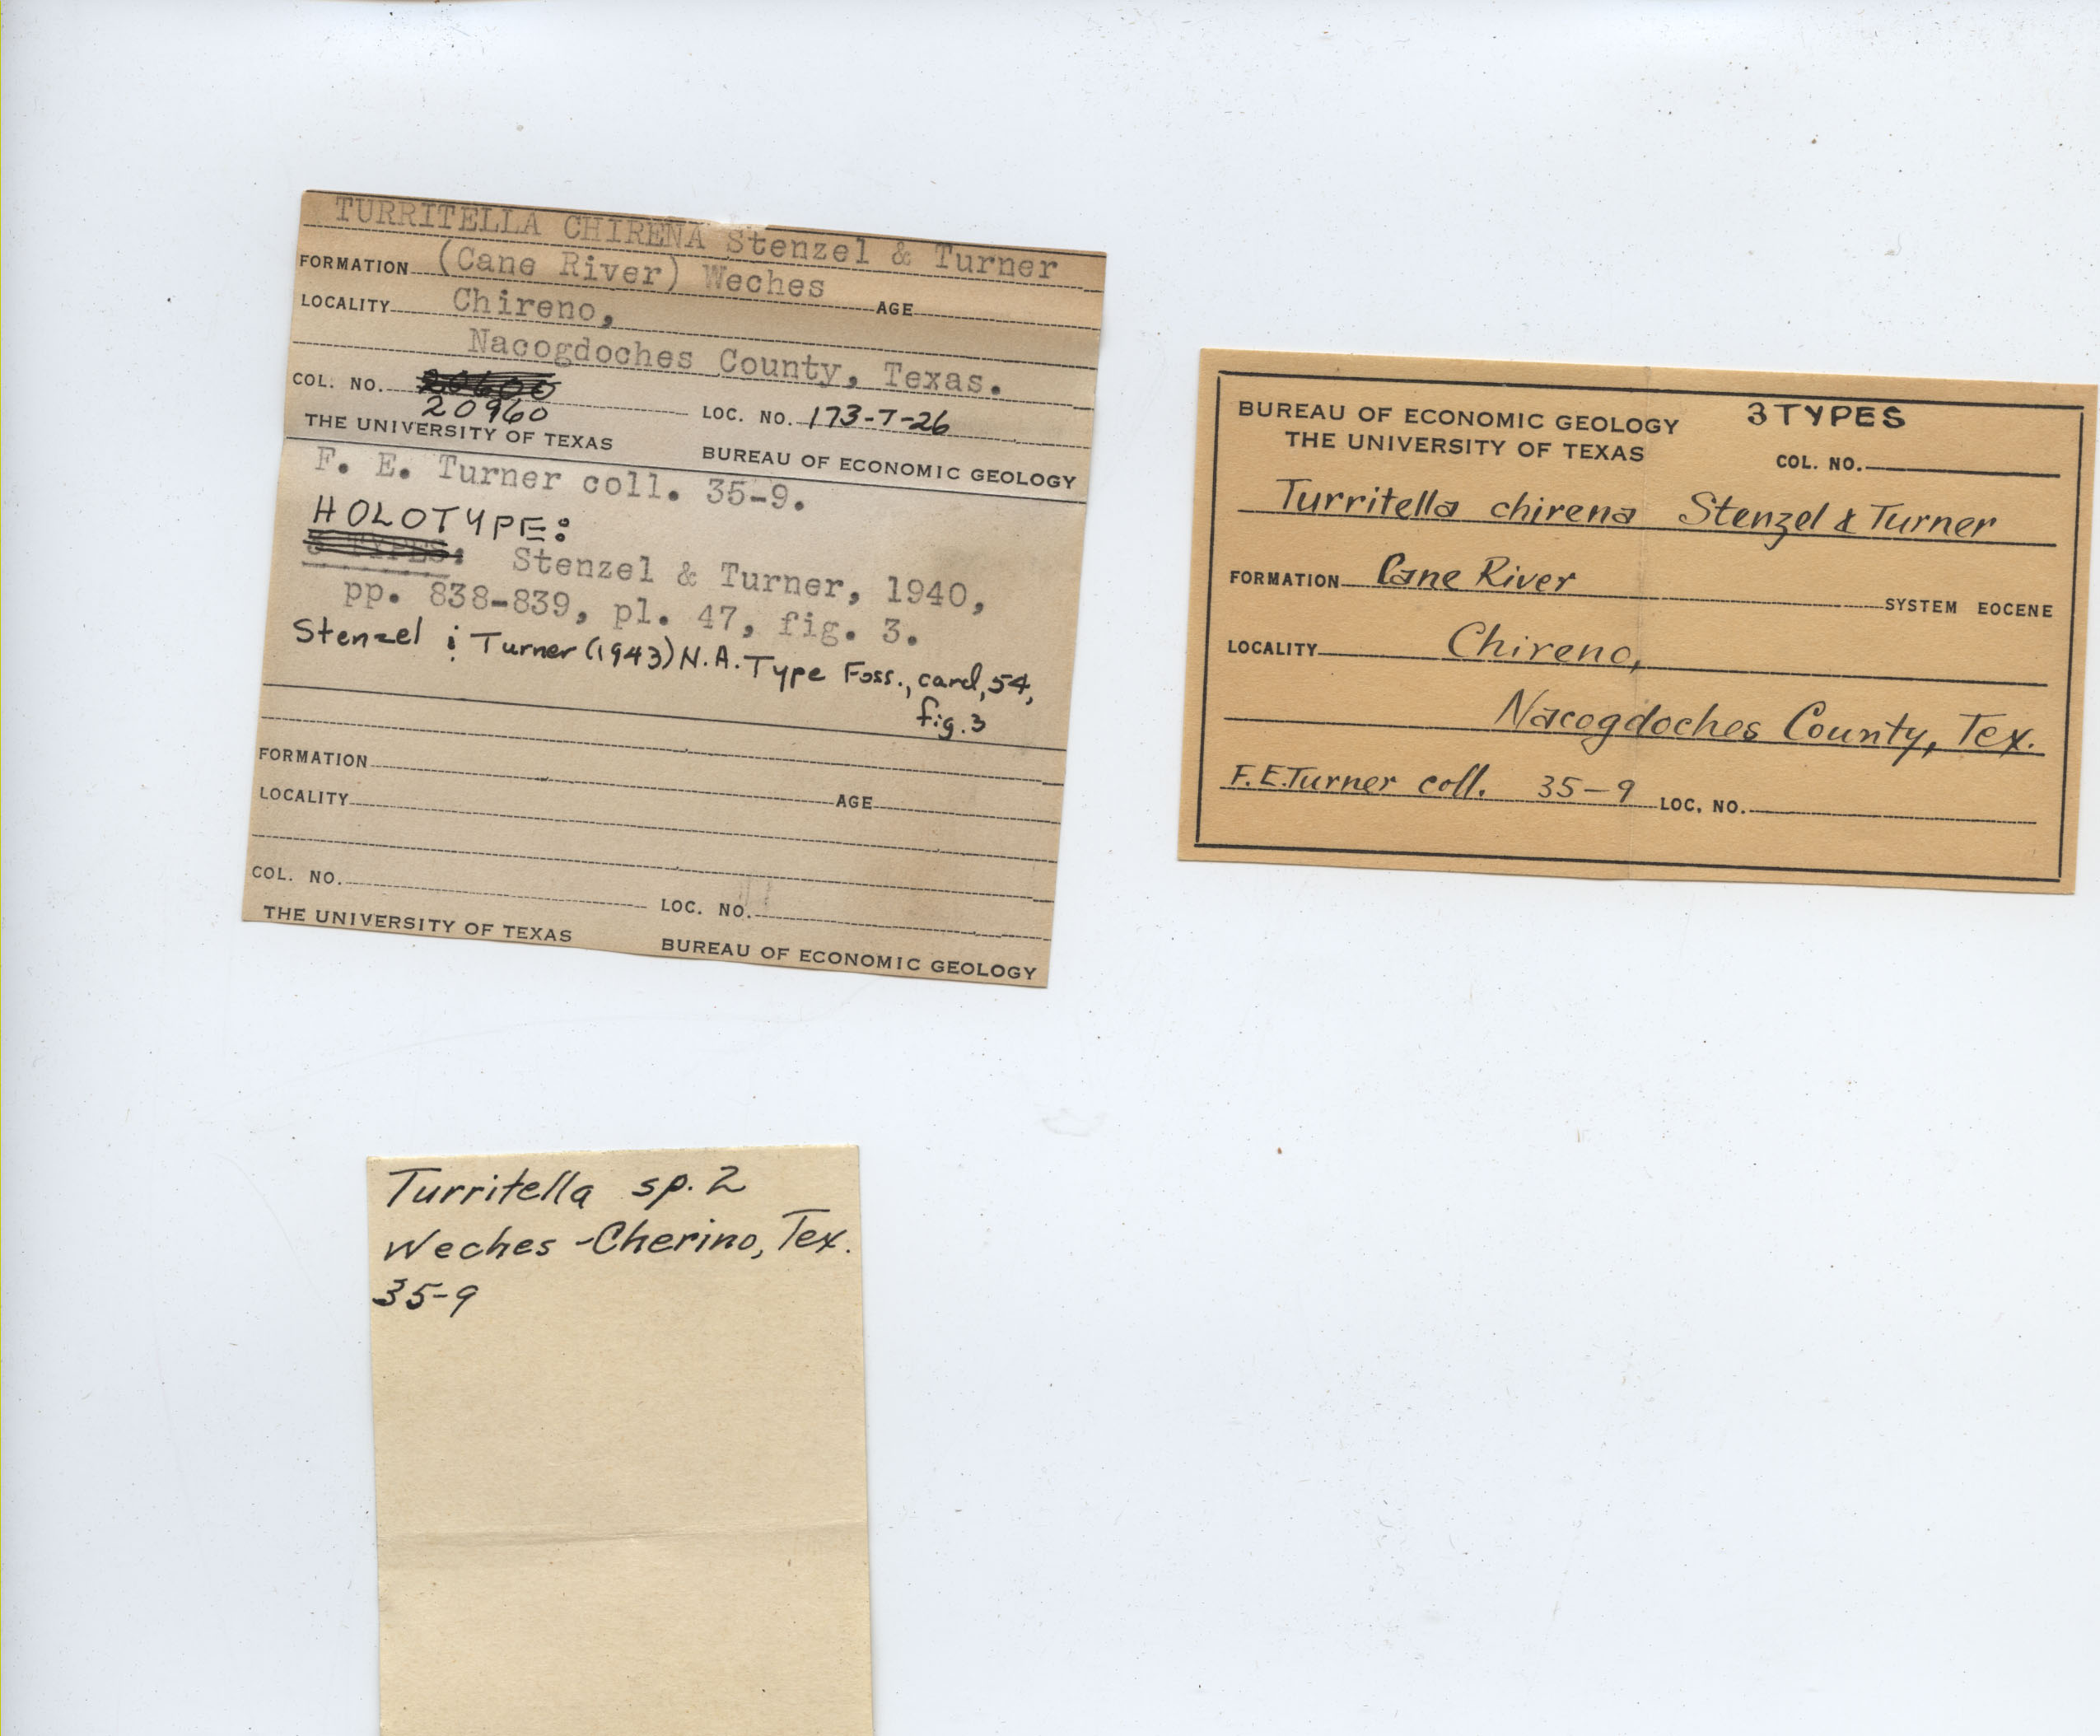 TURRITELLA CHIRENA Stenzel & Turner
FORMATION (Cane River) Weches AGE
LOCALITY Chireno,
Nacogdoches County, Texas.
COL. NO. 20600
20960 LOC. NO. 173-T-26
THE UNIVERSITY OF TEXAS BUREAU OF ECONOMIC GEOLOGY
F. E. Turner coll. 35-9.
HOLOTYPE:
3 TYPES: Stenzel & Turner, 1940,
pp. 838-839, pl. 47, fig. 3.
Stenzel & Turner (1943) N.A. Type Foss., card, 54,
fig. 3
FORMATION
LOCALITY AGE
COL. NO. LOC. NO.
THE UNIVERSITY OF TEXAS BUREAU OF ECONOMIC GEOLOGY
BUREAU OF ECONOMIC GEOLOGY 3 TYPES
THE UNIVERSITY OF TEXAS COL. NO.
Turritella chirena Stenzel & Turner
FORMATION Cane River SYSTEM EOCENE
LOCALITY Chireno,
Nacogdoches County, Tex.
F. E. Turner coll. 35-9 LOC. NO.
Turritella sp. 2
Weches - Cherino, Tex.
35-9